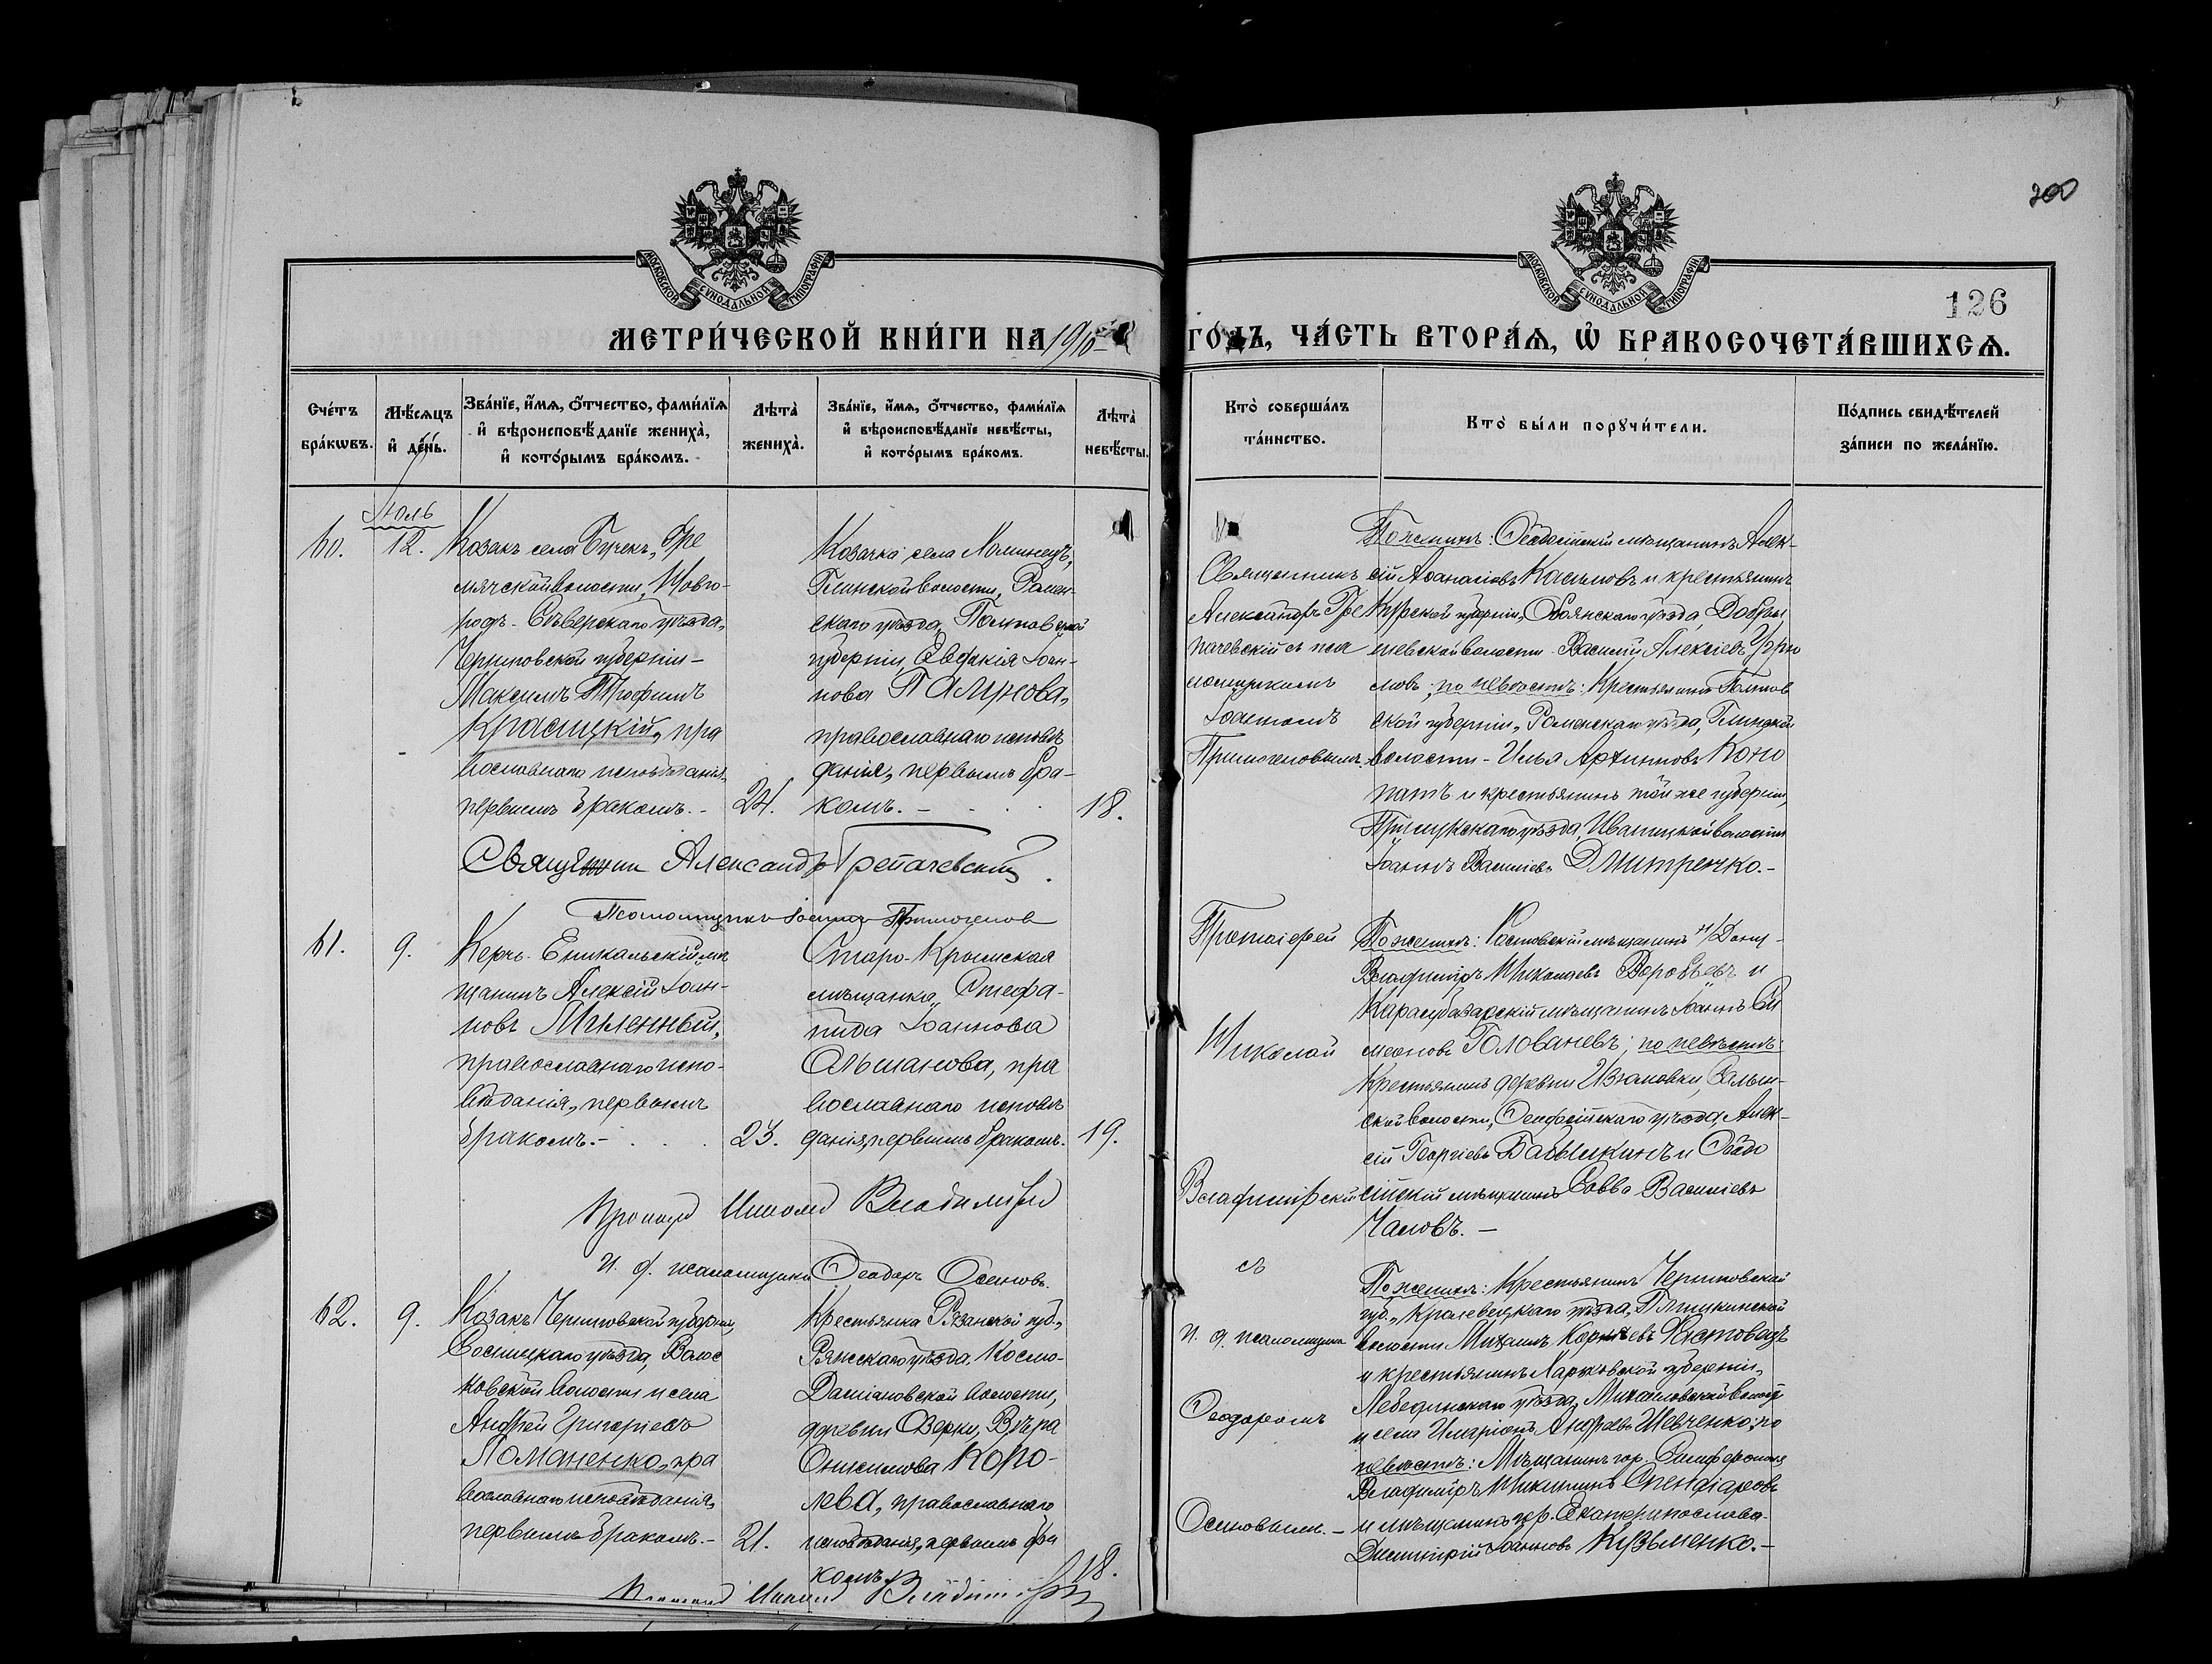 200
126
МОСКОВСКОЙ СѴНОДАЛЬНОЙ ТИПОГРАФІИ
МОСКОВСКОЙ СѴНОДАЛЬНОЙ ТИПОГРАФІИ
МЕТРИ́ЧЕСКОЙ КНИ́ГИ НА 1910
ГО́ДЪ, ЧА́СТЬ ВТОРА́Ѧ, Ѡ БРАКОСОЧЕТА́ВШИХСѦ.
Сче́тъ бра́кѡвъ.
Мѣ́сяцъ и҆ де́нь.
Зва́нїе, и҆́мѧ, ѻ҆́тчество, фами́лїѧ
и҆ вѣроисповѣ́данїе жениха̀,
и҆ кото́рымъ бра́комъ.
Лѣта̀ жениха̀.
Зва́нїе, и҆́мѧ, ѻ҆́тчество, фами́лїѧ
и҆ вѣроисповѣ́данїе невѣ́сты,
и҆ кото́рымъ бра́комъ.
Лѣта̀ невѣ́сты.
Кто̀ соверша́лъ та́инство.
Кто̀ бы́ли порꙋчи́тели.
По́дпись свидѣ́телей за́писи по жела́нїю.
60.
12.
Козакъ села
волости, Новго-
родъ-Сѣверскаго уѣзда,
Черниговской губерніи -
Максимъ Трофимъ
Красицкій, пра
вославнаго исповѣданія,
первымъ бракомъ.-
24.
Козачка села
Глинской волости, Ромен-
скаго уѣзда, Полтавской
губерніи, Евфимія Іоан-
нова
православнаго исповѣ
данія, первымъ бра-
комъ. -
18.
Священникъ
Александръ Гре
пачевскій съ пса
ломщикомъ
Іоанномъ
По женихѣ: Ѳеодосійскій мѣщанинъ Алек-
сій Аѳанасіевъ Касимовъ и крестьянинъ
Курской губерніи, Обоянскаго уѣзда,
волости Василій Алексіевъ
по невѣстѣ: крестьянинъ Полтав
ской губерніи, Роменскаго уѣзда, Глинской
волости - Илья Коно
патъ и крестьянинъ той же губерніи,
Прилукскаго уѣзда, Иваницкой волости
Іоаннъ Василіевъ Дмитренко.-
Священник Александръ Грепачевский.
61.
9.
Керчь-Еникальскій мѣ
щанинъ Алексій Іоан-
новъ Мѣленный,
православнаго испо-
вѣданія, первымъ
бракомъ.-
23.
Старо-Крымская
мѣщанка, Стефа-
нида Іоаннова
Ольшанова, пра
вославнаго исповѣ
данія, первымъ бракомъ.
19.
Протоіерей
Николай
Владимірскій
съ
И. д. псаломщика
Ѳеодоромъ
Осиповымъ.-
По женихѣ: Ростовскій мѣщанинъ н/Дону -
Владиміръ Николаевъ Воробьевъ и
Карасубазарскій мѣщанинъ Іоаннъ Си
меоновъ Голованевъ; по невѣстѣ:
крестьянинъ деревни Изюмовки, Салын-
ской волости, Ѳеодосійскаго уѣзда, Алек-
сій Георгіевъ Бабычкинъ и Ѳеодо
сійскій мѣщанинъ Савва Василіевъ
Чаловъ.-
Николай Владимірскій
И. д. псаломщика Ѳеодоръ Осиповъ.
62.
9.
Козакъ Черниговской губерніи,
Сосницкаго уѣзда, Волос
ковской волости и села
Андрей Григоріевъ
Ломаненко, пра
вославнаго исповѣданія,
первымъ бракомъ.-
21.
Крестьянка Рязанской губ.,
Ряжскаго уѣзда, Космо-
Даміановской волости,
деревни Озерки, Вѣра
Онисимова Коро-
лева, православнаго
исповѣданія, первымъ бра
комъ.
18.
По женихѣ: Крестьянинъ Черниговской
губ., Кролевецкаго уѣзда,
волости Михаилъ Хвостовецъ
и крестьянинъ Харьковской губерніи,
Лебединскаго уѣзда, Михайловской волости
и села Иларіонъ Андреевъ Шевченко; по
невѣстѣ: Мѣщанинъ гор. Симферополя
Владиміръ Никитинъ Спендіаровъ
и мѣщанинъ гор. Екатеринослава
Димитрій Іоанновъ Кузьменко.-